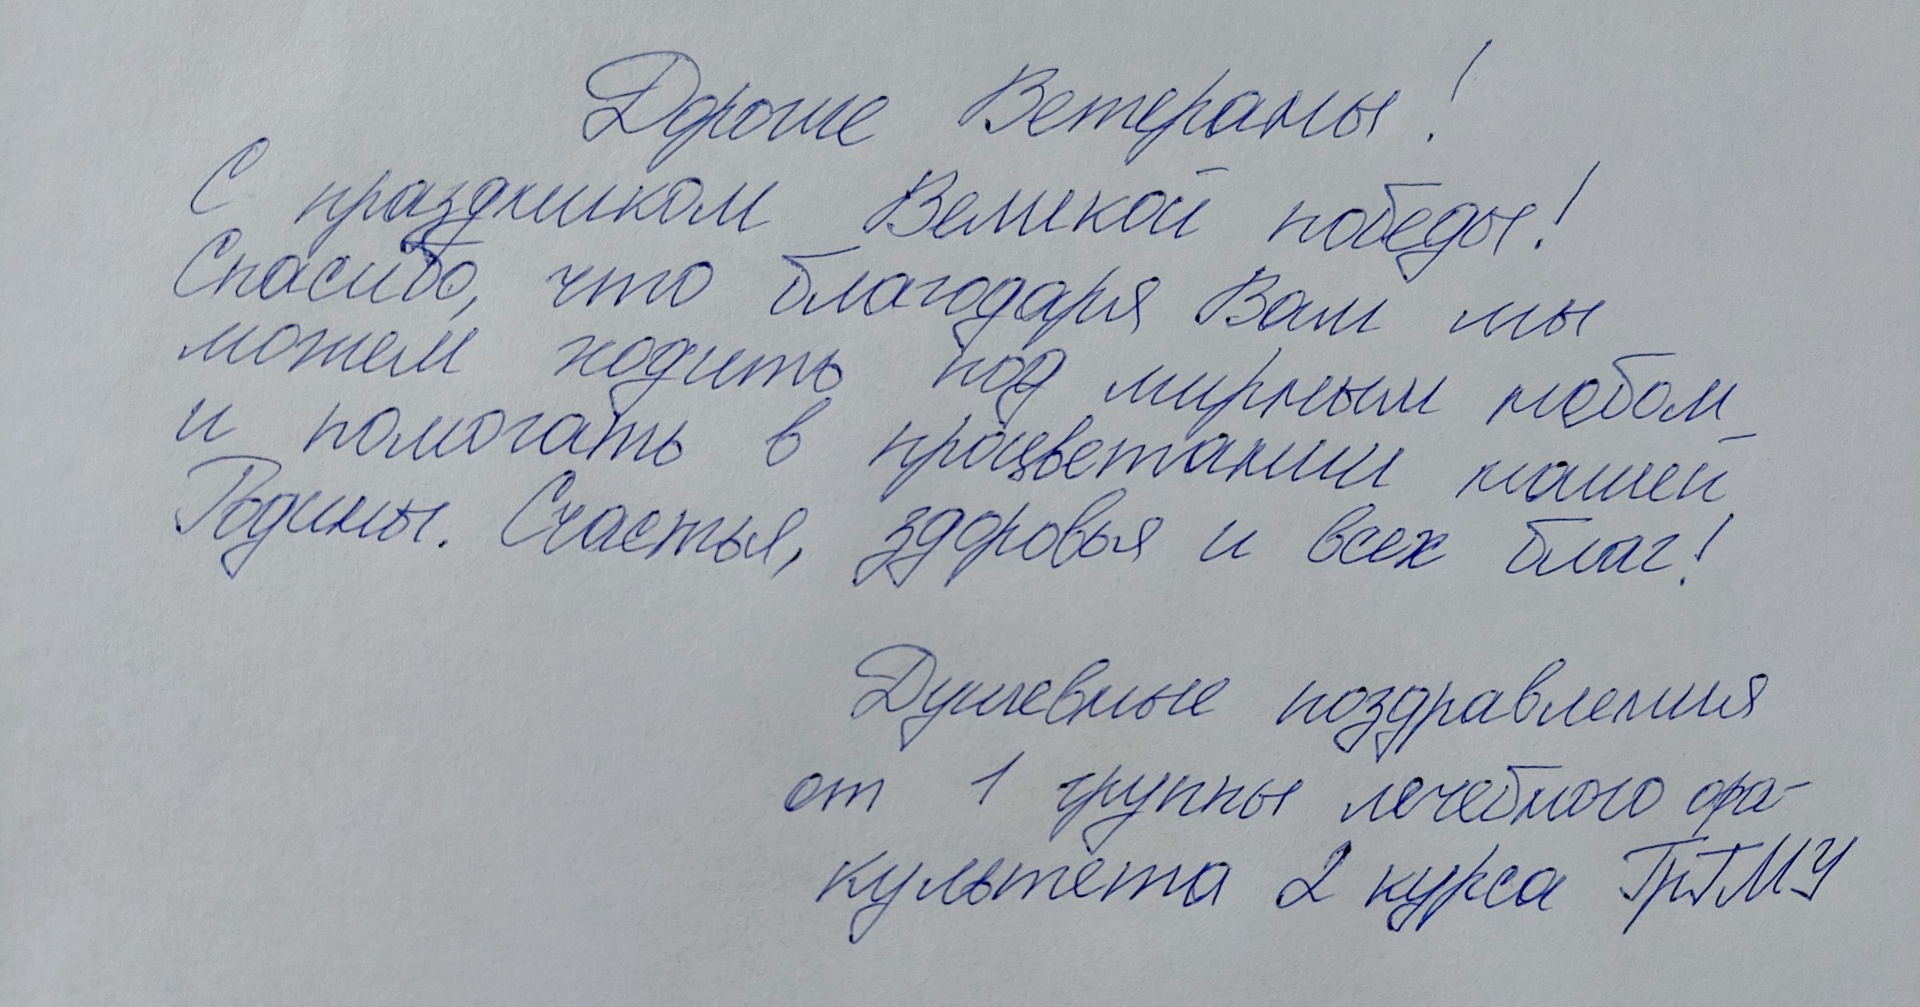 Дорогие Ветераны!
С праздником Великой победы!
Спасибо, что благодаря Вам мы
можем ходить под мирным небом
и помогать в процветании нашей
Родины. Счастья, здоровья и всех благ!
Душевные поздравления
от 1 группы лечебного фа-
культета 2 курса ГрГМУ